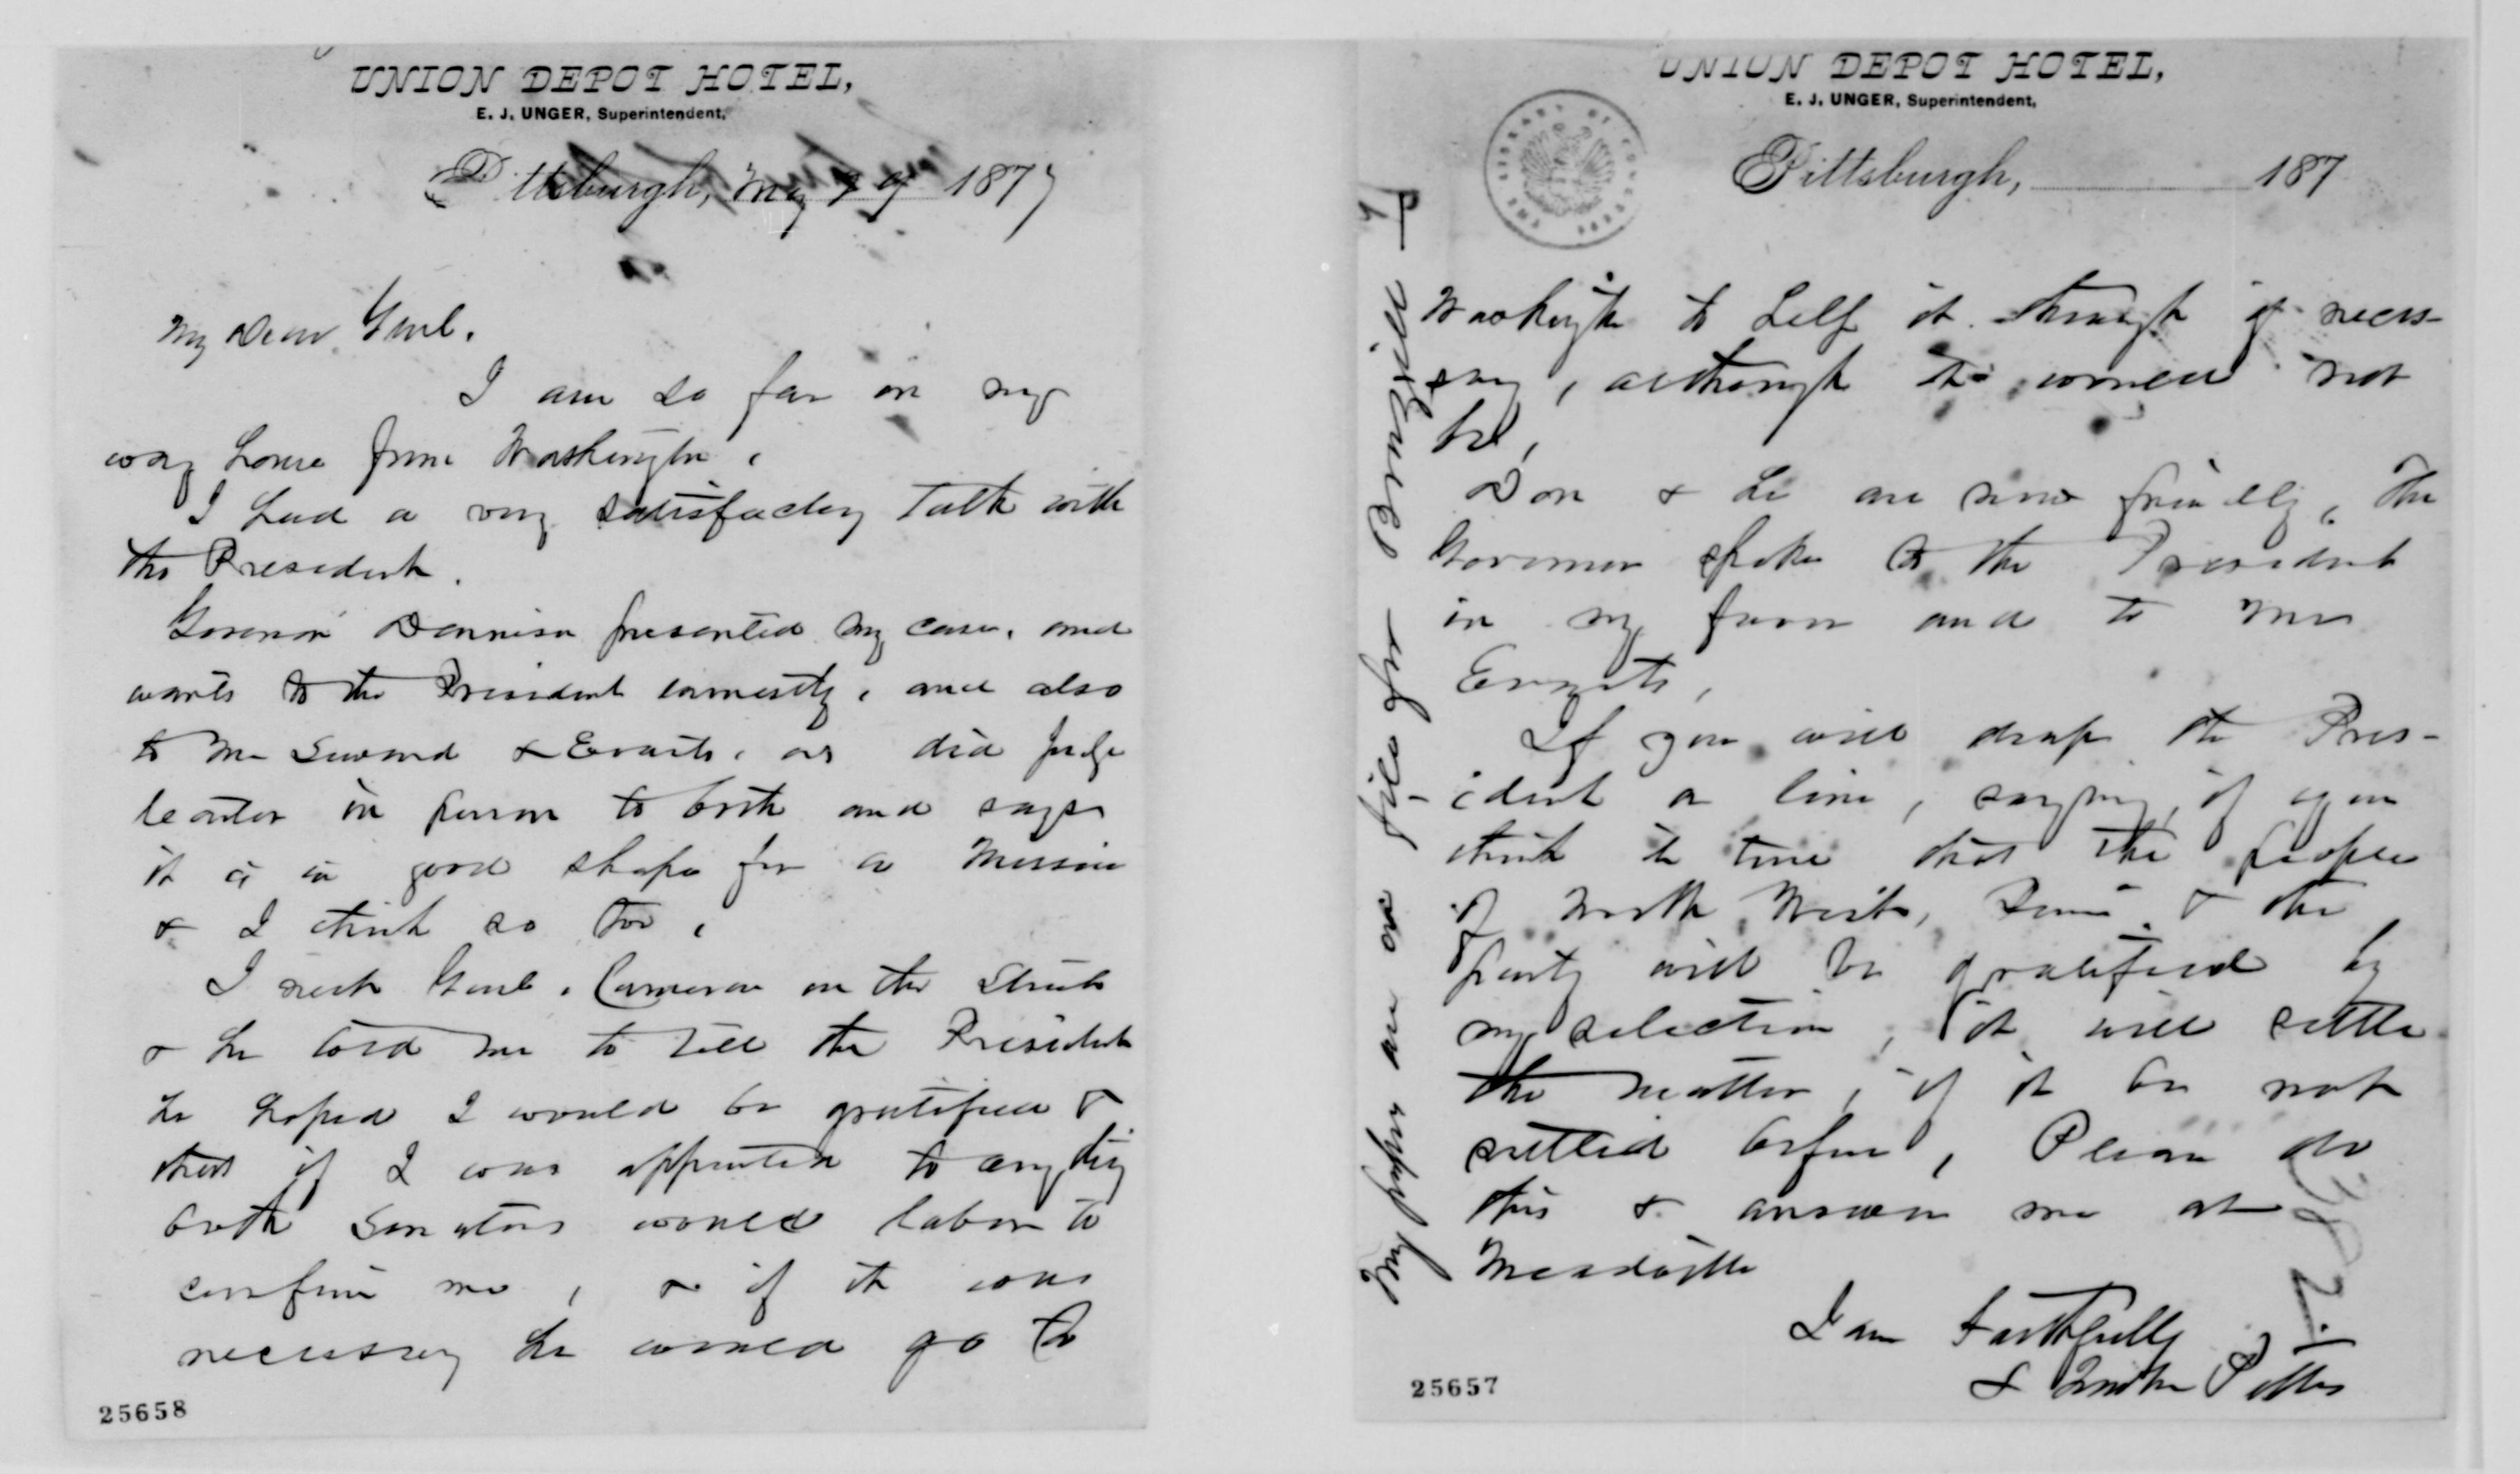 UNION DEPOT HOTEL,
E. J. UNGER, Superintendent,
Pittsburgh, May 29 1877
My Dear Genl.
I am so far on my
way home from Washington.
I had a very satisfactory talk with
the President.
Governor Dennison presented my case, and
wants to the President earnestly, and also
to Mr Seward & Evarts, as did Judge
in person to both and says
it is in good shape for a Mission
& I think so too.
I met Genl. Cameron on the Street
& he told me to tell the President
he hoped I would be gratified &
that if I was appointed to anything
both Senators would labor to
confirm me, & if it was
necessary he would go to
25658
UNION DEPOT HOTEL,
E. J. UNGER, Superintendent,
Pittsburgh, 187
THE LIBRARY OF CONGRESS
Washington to help it through if neces-
sary, although it would not
be,
Don & he are now friendly, The
Governor spoke to the President
in my favor and to Mr
Evarts,
If you will drop the Pres-
ident a line, saying, if you
think it true that the people
of North West, Penna & the
party will be gratified by
my selection, it will settle
the matter, if it be not
settled before, Please do
this & answer me at
Meadville
I am Faithfully
Pettis
My papers are on file for Brazil
382
25657